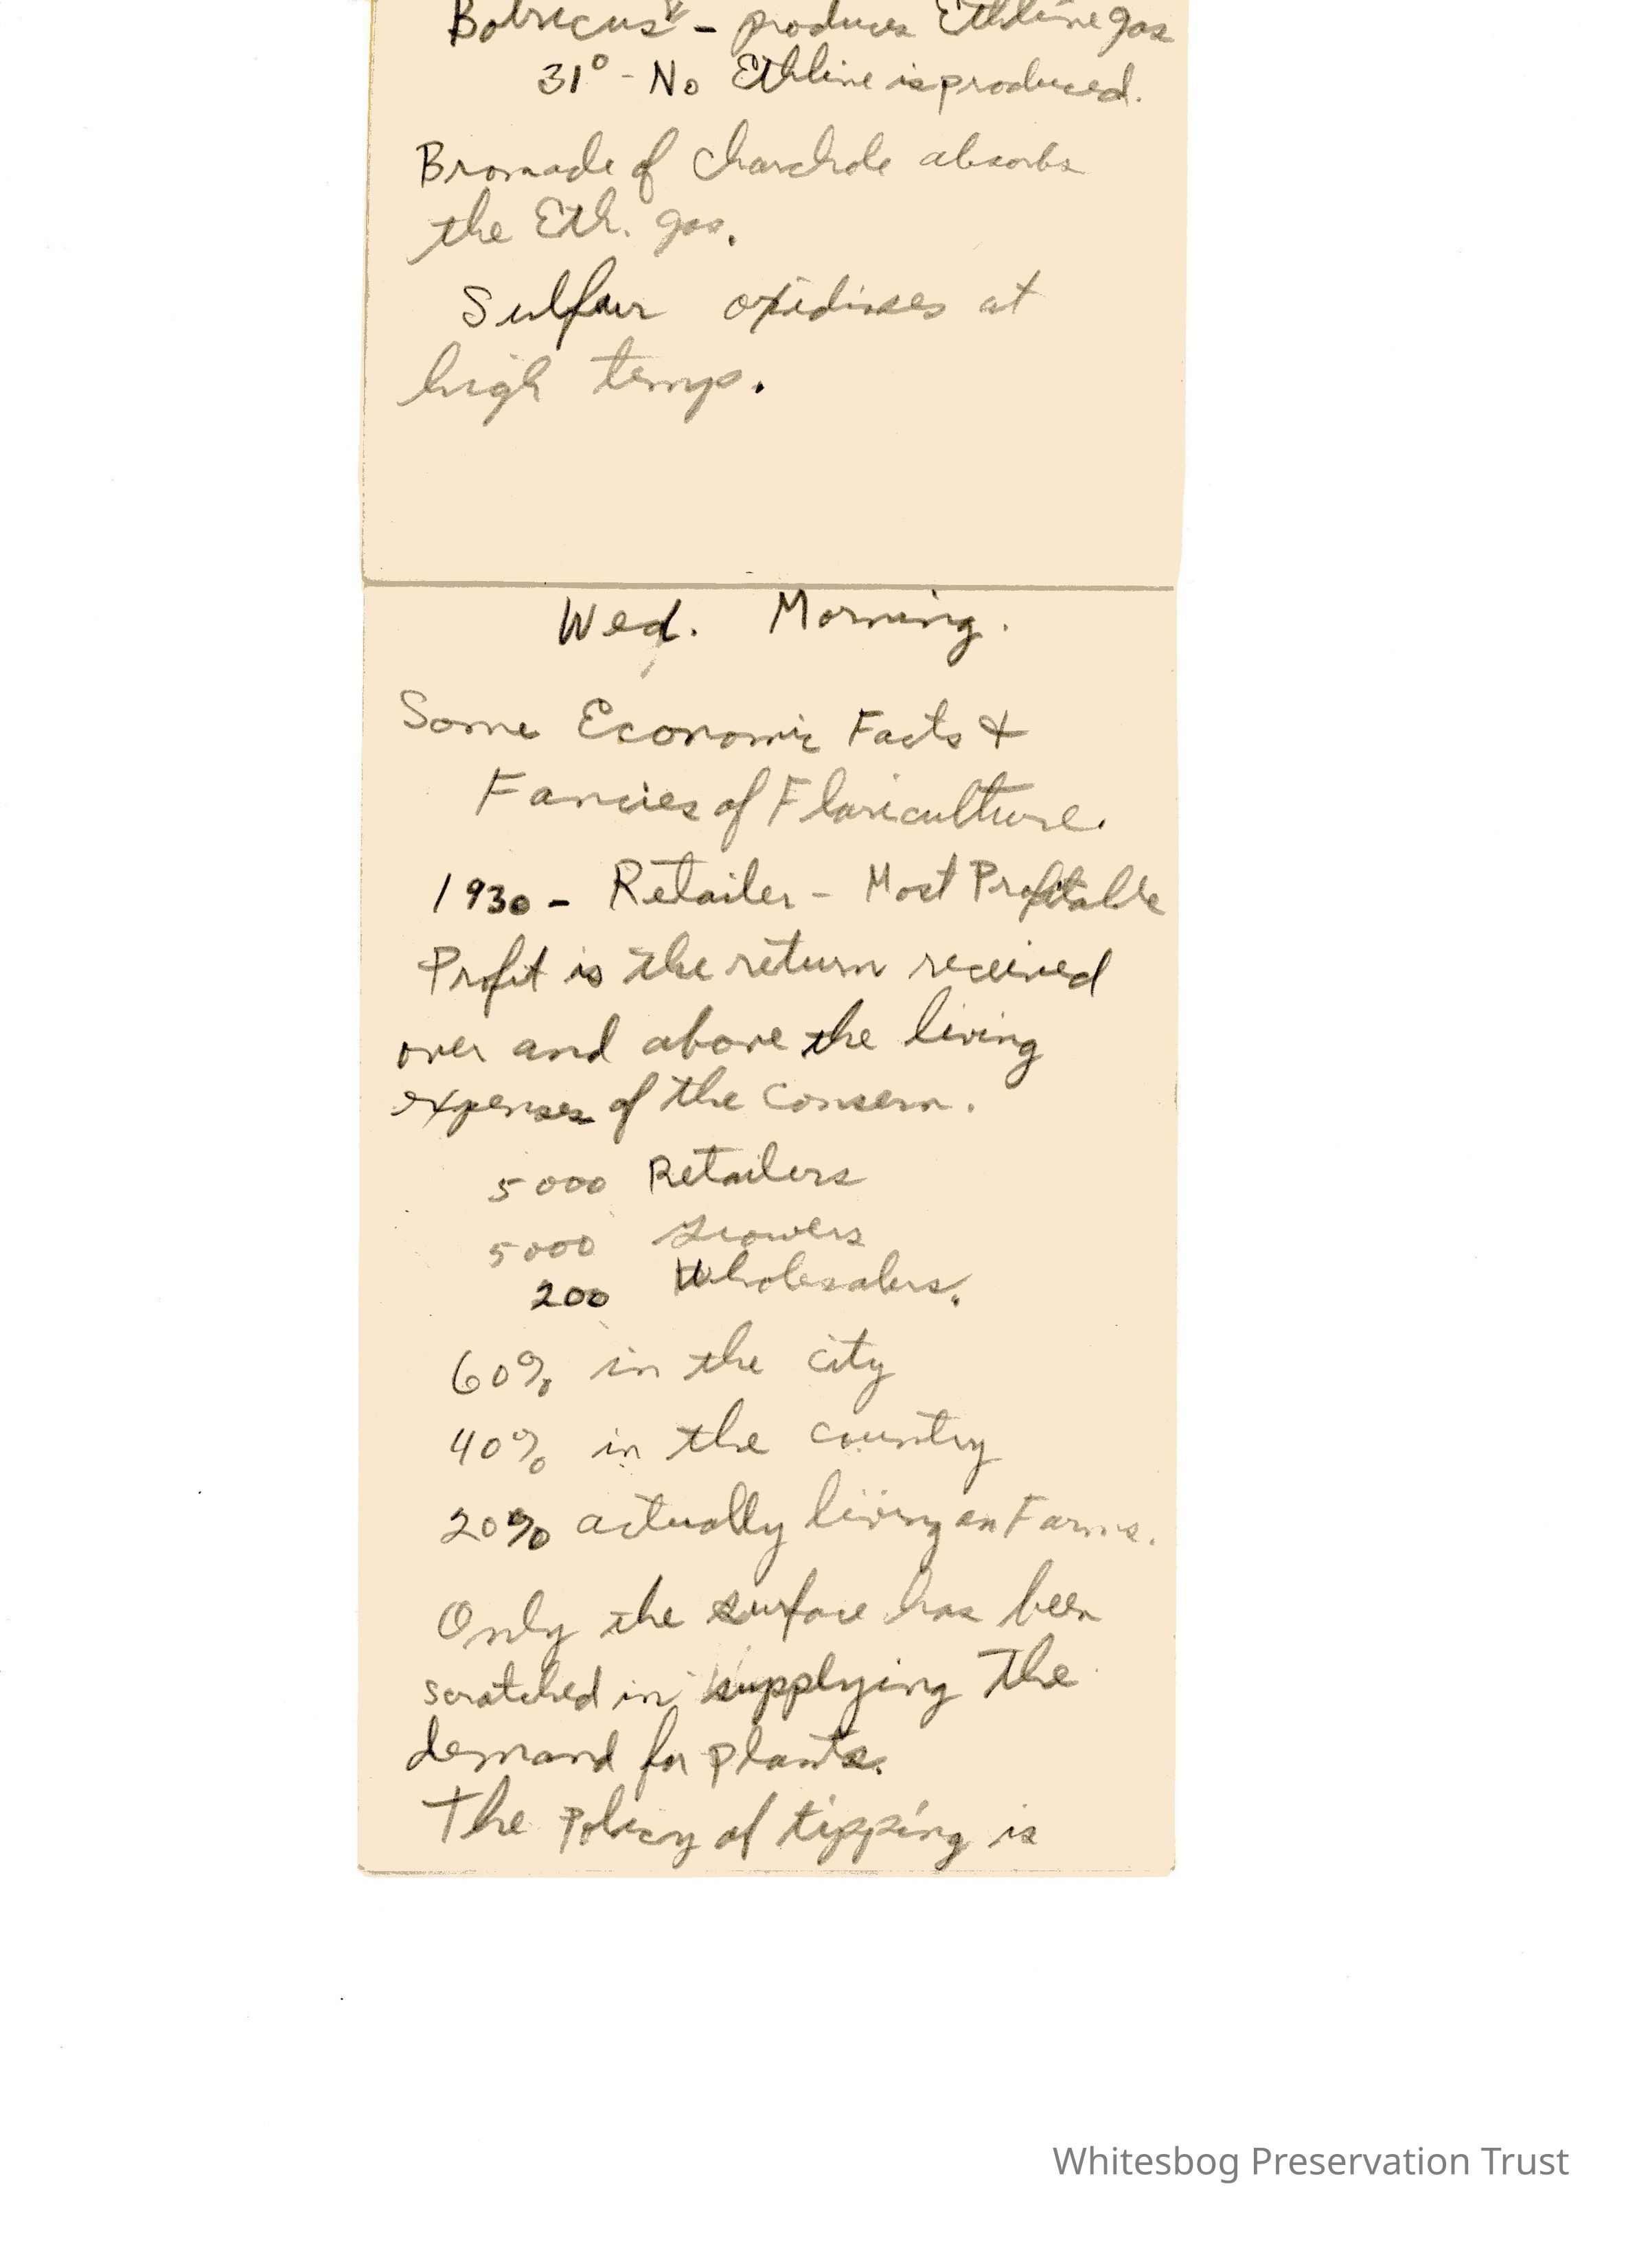 Botricus - produces Ethline gas
31° - No Ethline is produced.
Bromade of charchole absorbs
the Eth. gas.
Sulfur oxidises at
high temp.
Wed. Morning.
Some Economic Facts &
Fancies of Floriculture.
1930 - Retailer - Most Profitable
Profit is the return received
over and above the living
expenses of the consern.
5000 Retailers
5000 Growers
200 Wholesalers.
60% in the city
40% in the country
20% actually living on Farms.
Only the surface has been
scratched in supplying the
demand for plants.
The Policy of tipping is
Whitesbog Preservation Trust